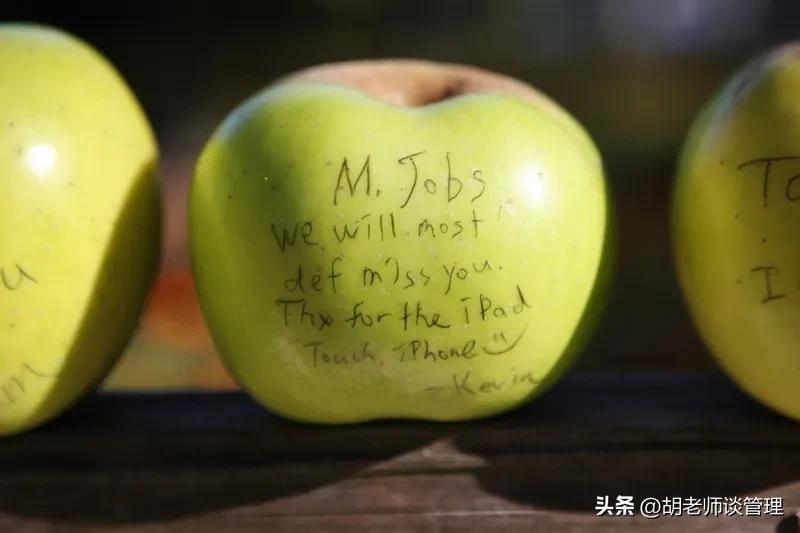 M. Jobs
we will most
def miss you.
Thx for the iPad
Touch, iPhone
-Kevin
u
m
To
I
头条 @胡老师谈管理